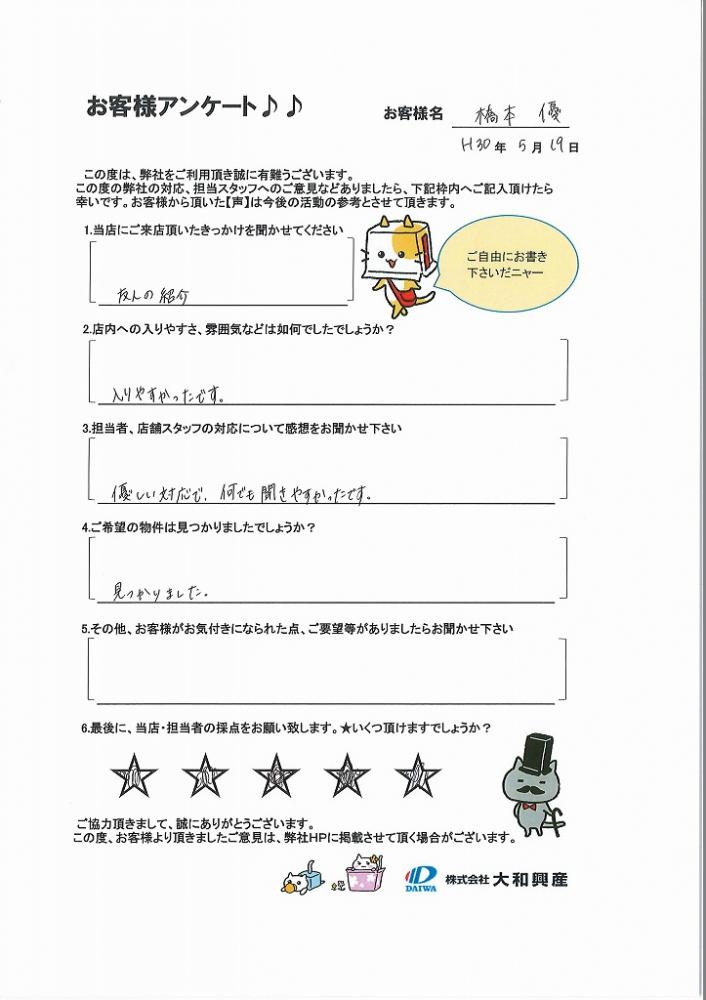 お客様アンケート♪♪
お客様名 橋本 優
H30年 5月 19日
この度は、弊社をご利用頂き誠に有難うございます。
この度の弊社の対応、担当スタッフへのご意見などありましたら、下記枠内へご記入頂けたら
幸いです。お客様から頂いた【声】は今後の活動の参考とさせて頂きます。
1.当店にご来店頂いたきっかけを聞かせてください
友人の紹介
ご自由にお書き
下さいだニャー
2.店内への入りやすさ、雰囲気などは如何でしたでしょうか?
入りやすかったです。
3.担当者、店舗スタッフの対応について感想をお聞かせ下さい
優しい対応で、何でも聞きやすかったです。
4.ご希望の物件は見つかりましたでしょうか?
見つかりました。
5.その他、お客様がお気付きになられた点、ご要望等がありましたらお聞かせ下さい
6.最後に、当店・担当者の採点をお願い致します。★いくつ頂けますでしょうか?
ご協力頂きまして、誠にありがとうございます。
この度、お客様より頂きましたご意見は、弊社HPに掲載させて頂く場合がございます。
DAIWA 株式会社 大和興産